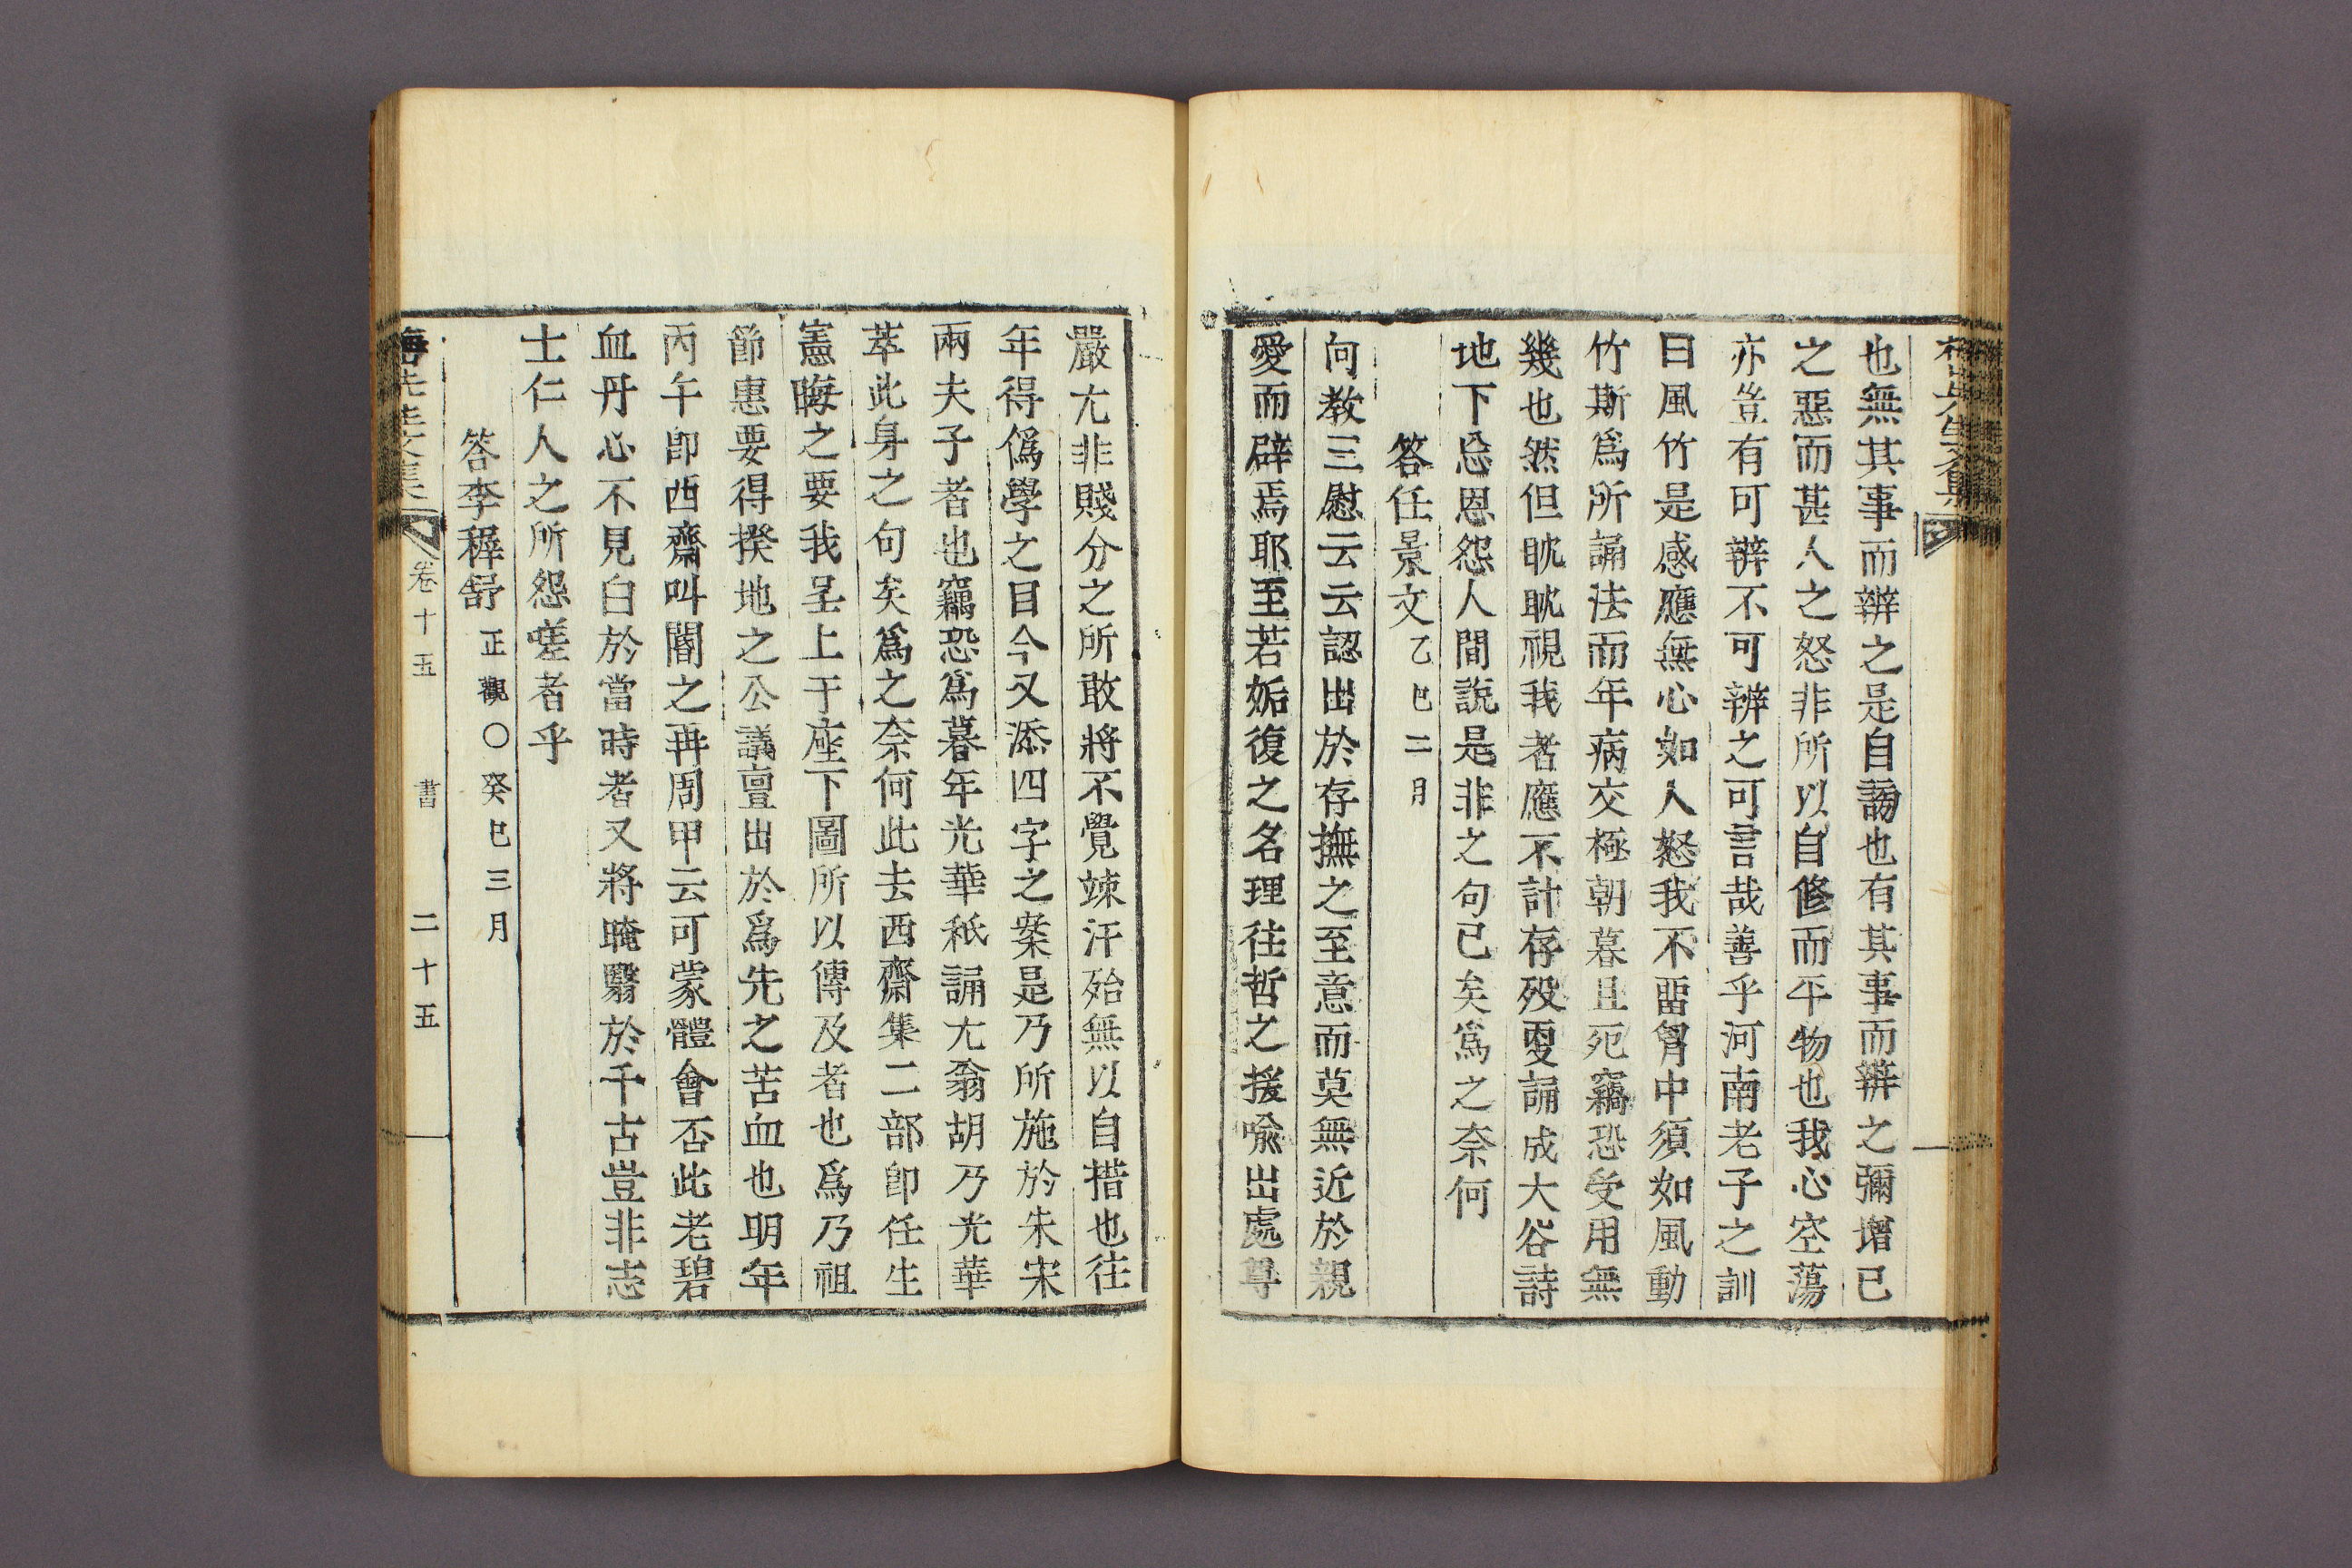 也無其事而辨之是自謟也有其事而辨之彌增己
之惡而甚人之怒非所以自修而平物也我心空蕩
亦豈有可辨不可辨之可言哉善乎河南老子之訓
曰風竹是感應無心如人怒我不畱胷中須如風動
竹斯爲所誦法而年病交極朝暮且死竊恐受用無
幾也然但眈眈視我者應不計存殁更誦成大谷詩
地下忘恩怨人間說是非之句已矣爲之奈何
答任景文乙巳二月
向教三慰云云認出於存撫之至意而莫無近於親
愛而辟焉耶至若姤復之名理往哲之援喩出處尊
嚴尤非賤分之所敢將不覺竦汗殆無以自措也往
年得僞學之目今又添四字之案是乃所施於朱宋
兩夫子者也竊恐爲暮年光華秖誦尤翁胡乃光華
萃此身之句矣爲之奈何此去西齋集二部卽任生
憲晦之要我呈上于座下圖所以傳及者也爲乃祖
節惠要得揆地之公議亶出於爲先之苦血也明年
丙午卽西齋叫閽之再周甲云可蒙體會否此老碧
血丹心不見白於當時者又將晻翳於千古豈非志
士仁人之所怨嗟者乎
答李穉舒正觀○癸巳三月
卷十五 書 二十五